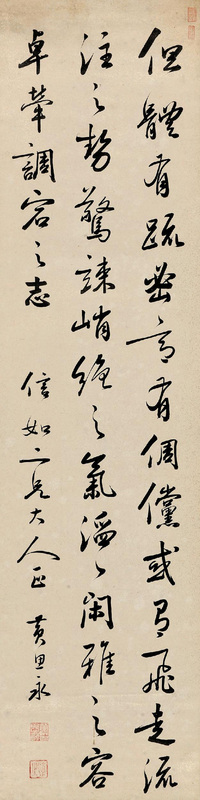 但體有疏密意有倜儻或有飛走流
注之勢驚竦峭絕之氣滔〻閑雅之容
卓犖調宕之志 信如二兄大人正 黃思永